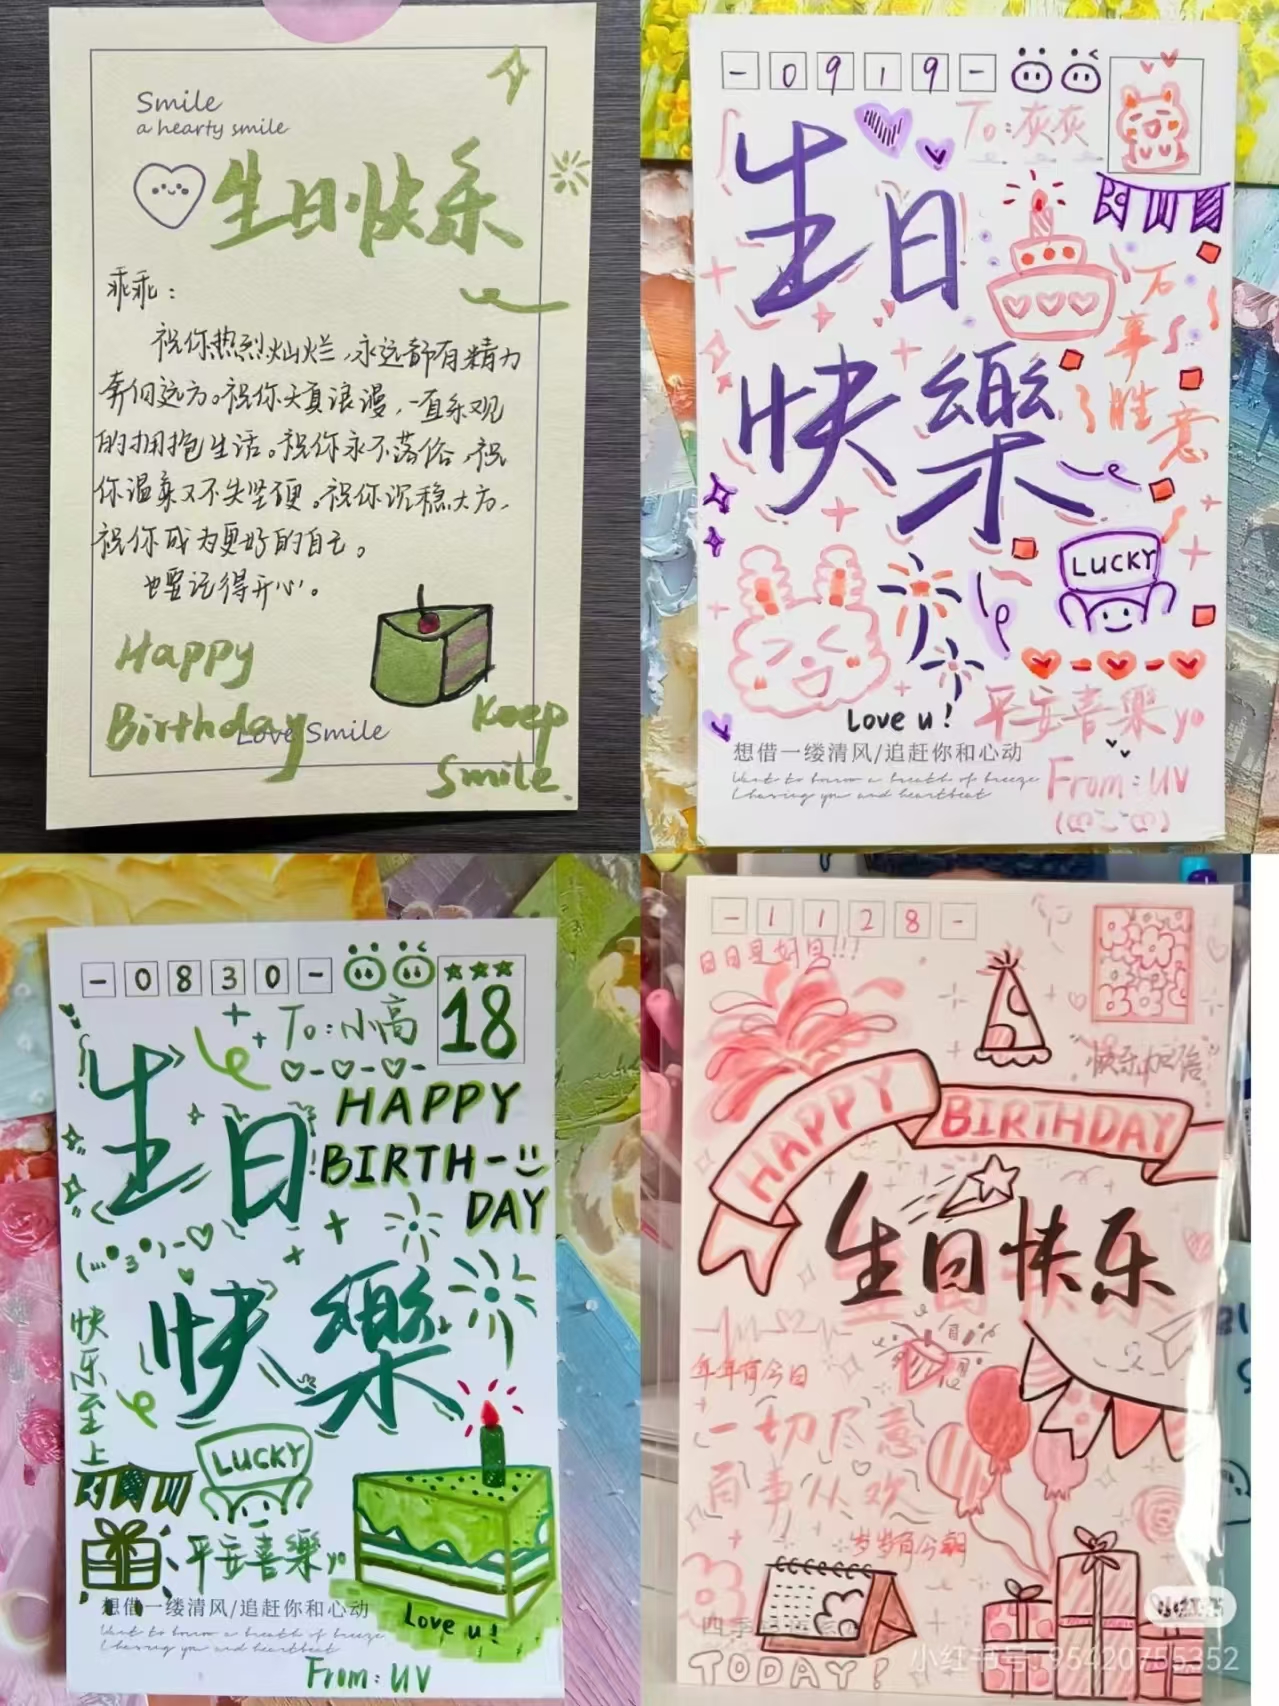 Smile
a hearty smile
生日快乐
乖乖：
祝你热烈灿烂，永远都有精力
奔向远方。祝你天真浪漫，一直乐观
的拥抱生活。祝你永不落俗，祝
你温柔又不失坚硬。祝你沉稳大方，
祝你成为更好的自己。
也要记得开心。
Happy
Birthday
Love Smile
Keep
Smile.
-0919-
To:灰灰
生日
快樂
万事胜意
LUCKY
Love u!
平安喜樂yo
想借一缕清风/追赶你和心动
Want to borrow a breath of breeze
Chasing you and heartbeat
From:UV
-0830-
18
To:小高
生日
HAPPY
BIRTH-
DAY
快樂
快乐至上
LUCKY
平安喜樂yo
Love u!
想借一缕清风/追赶你和心动
Want to borrow a breath of breeze
Chasing you and heartbeat
From:UV
-1128-
日日是好日!!!
"快乐加倍"
HAPPY BIRTHDAY
生日快乐
年年有今日
一切尽意
百事从欢
岁岁有今朝
TODAY!
小红书
小红书号:95420755352